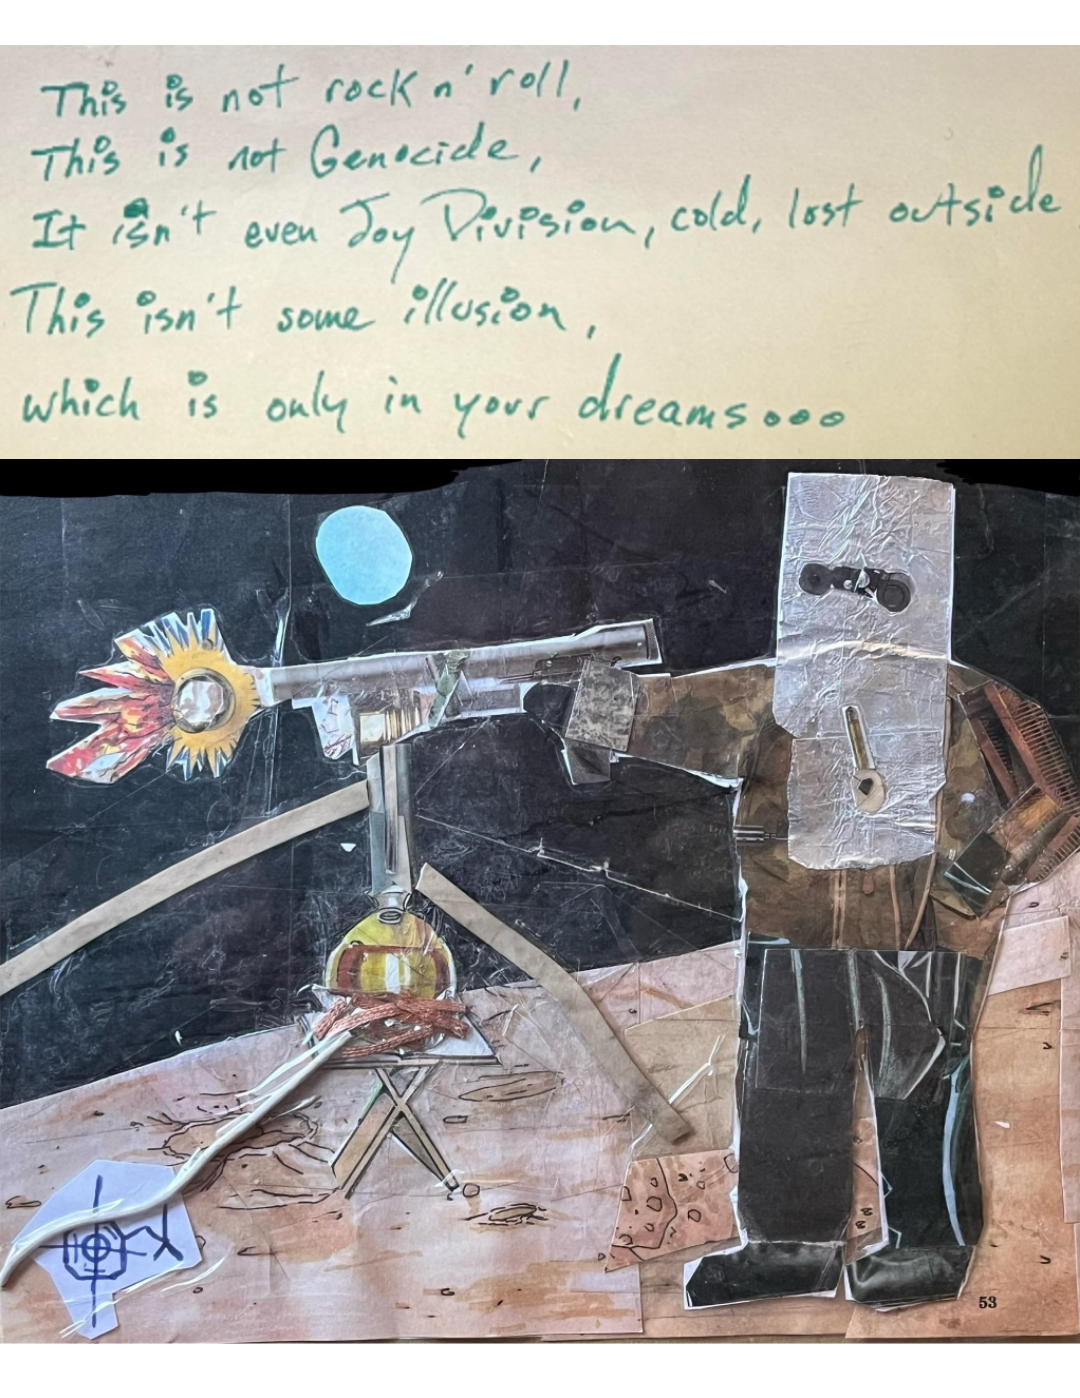 This is not rock n' roll,
This is not Genocide,
It isn't even Joy Division, cold, lost outside
This isn't some illusion,
which is only in your dreams...
53